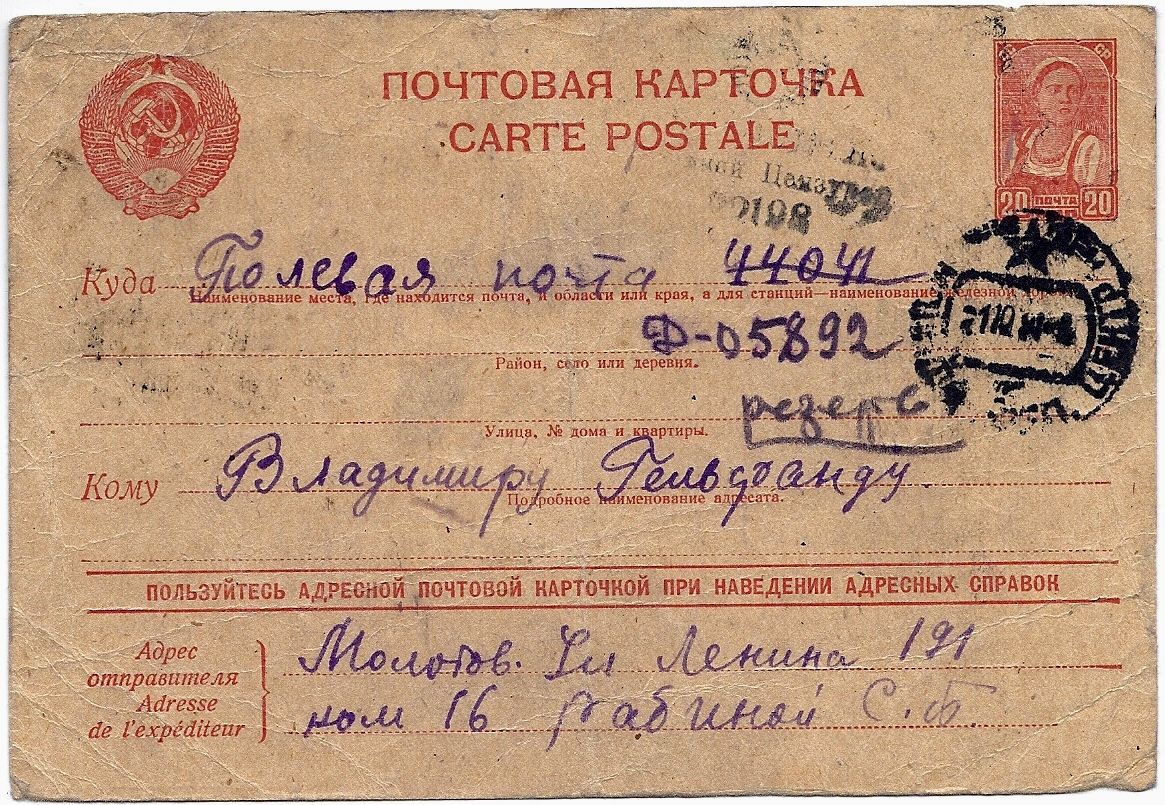 ПОЧТОВАЯ КАРТОЧКА
CARTE POSTALE
20 ПОЧТА 20
Куда Полевая почта 44041
Наименование места, где находится почта, и области или края, а для станций—наименование железной дороги
Д-05892
Район, село или деревня.
резерв
Улица, № дома и квартиры.
Кому Владимиру Гельфанду.
Подробное наименование адресата.
ПОЛЬЗУЙТЕСЬ АДРЕСНОЙ ПОЧТОВОЙ КАРТОЧКОЙ ПРИ НАВЕДЕНИИ АДРЕСНЫХ СПРАВОК
Адрес отправителя
Adresse de l'expéditeur
Молотов. Ул Ленина 191
ком 16 Рабиной С.Б.